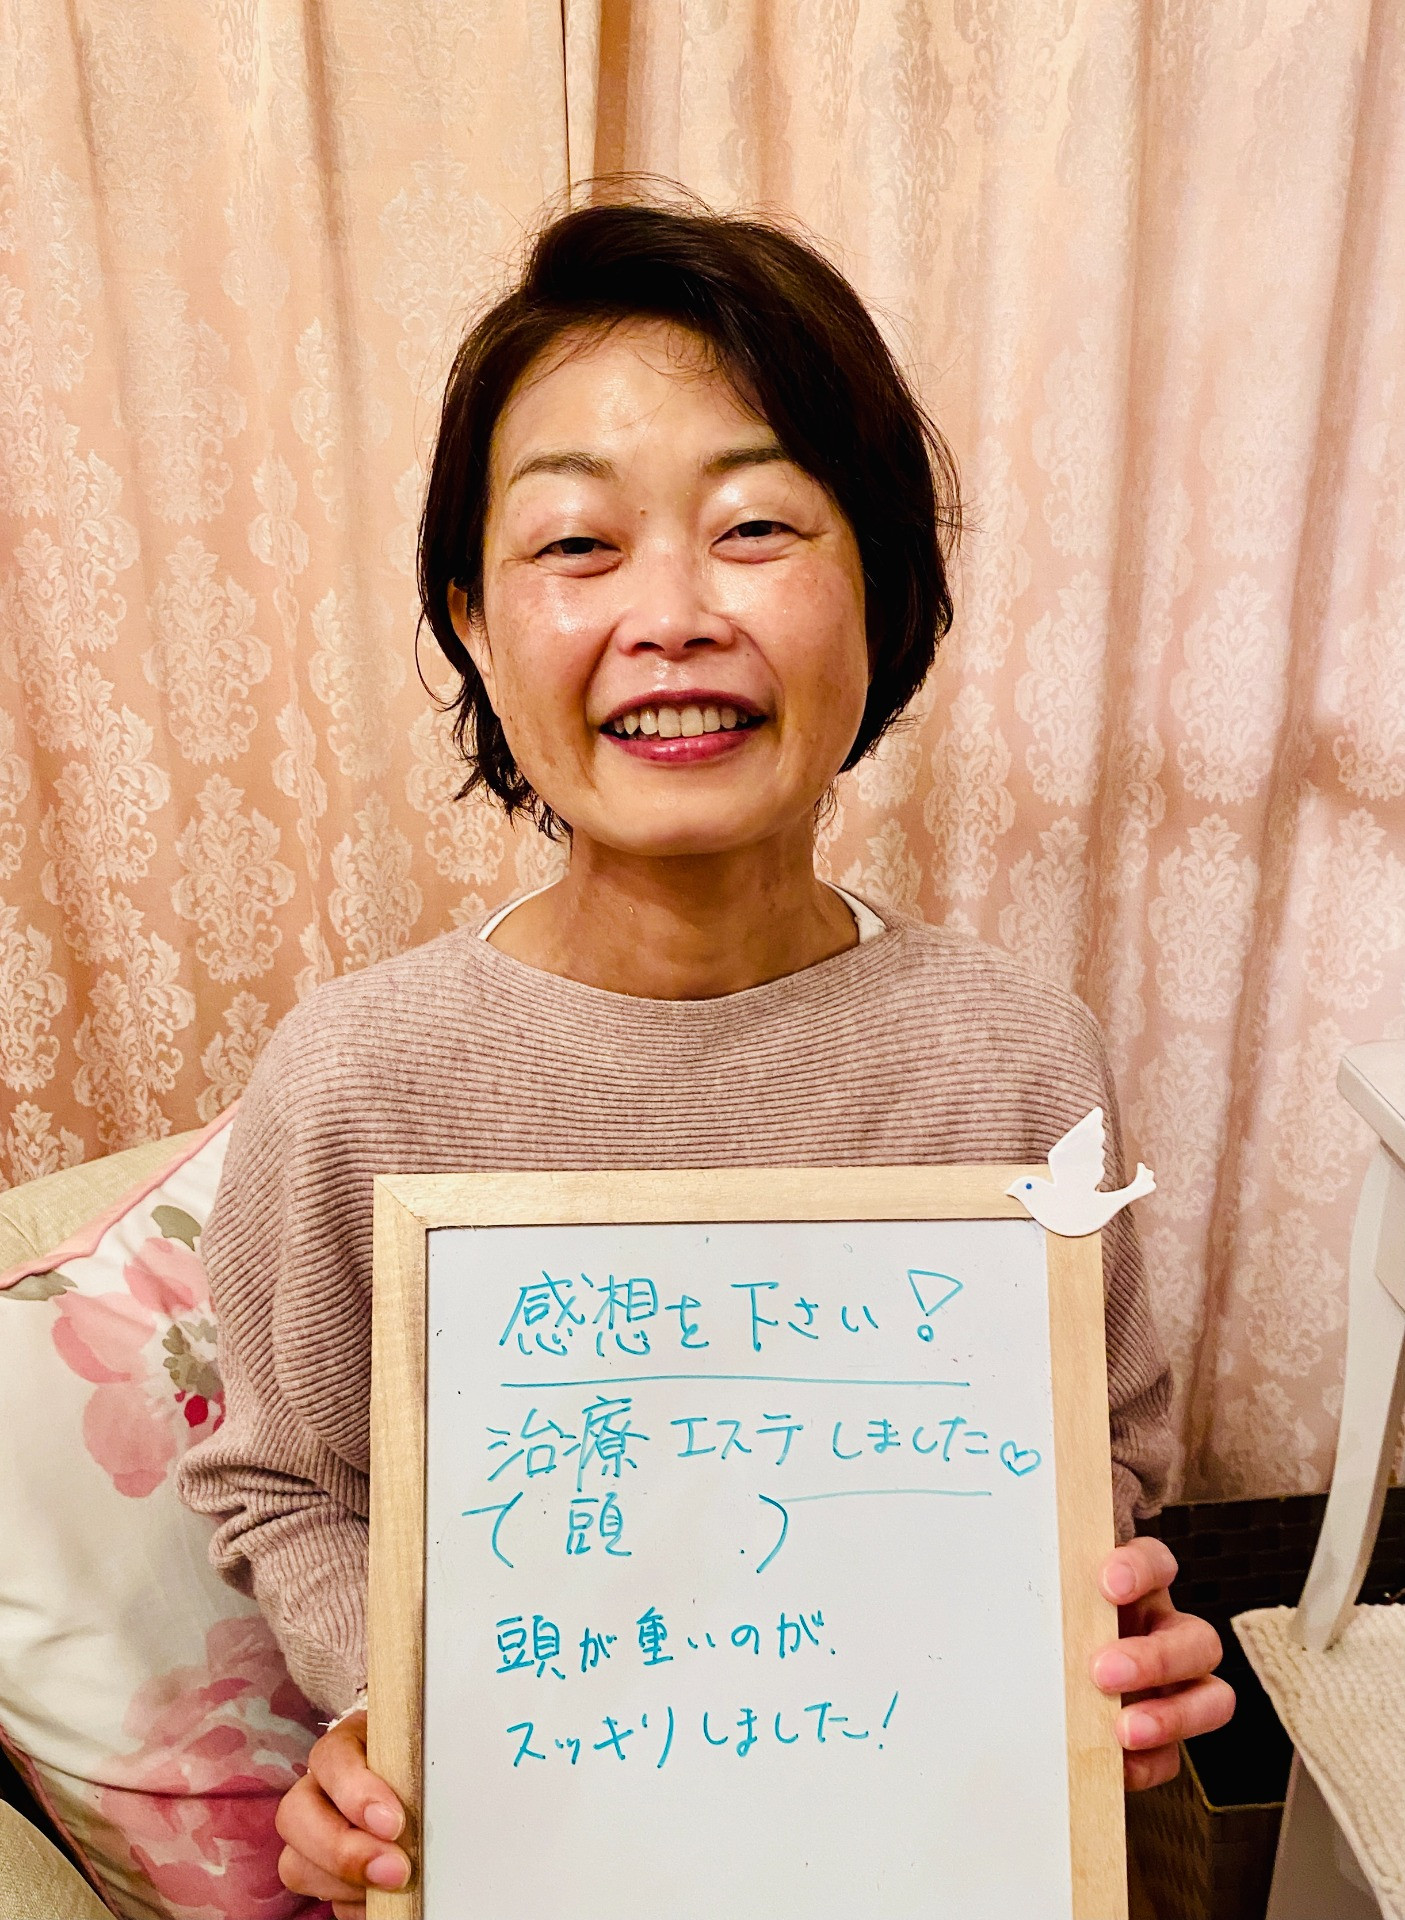 感想を下さい!
治療エステしました♡
(頭　　.)
頭が重いのが、
スッキリしました!